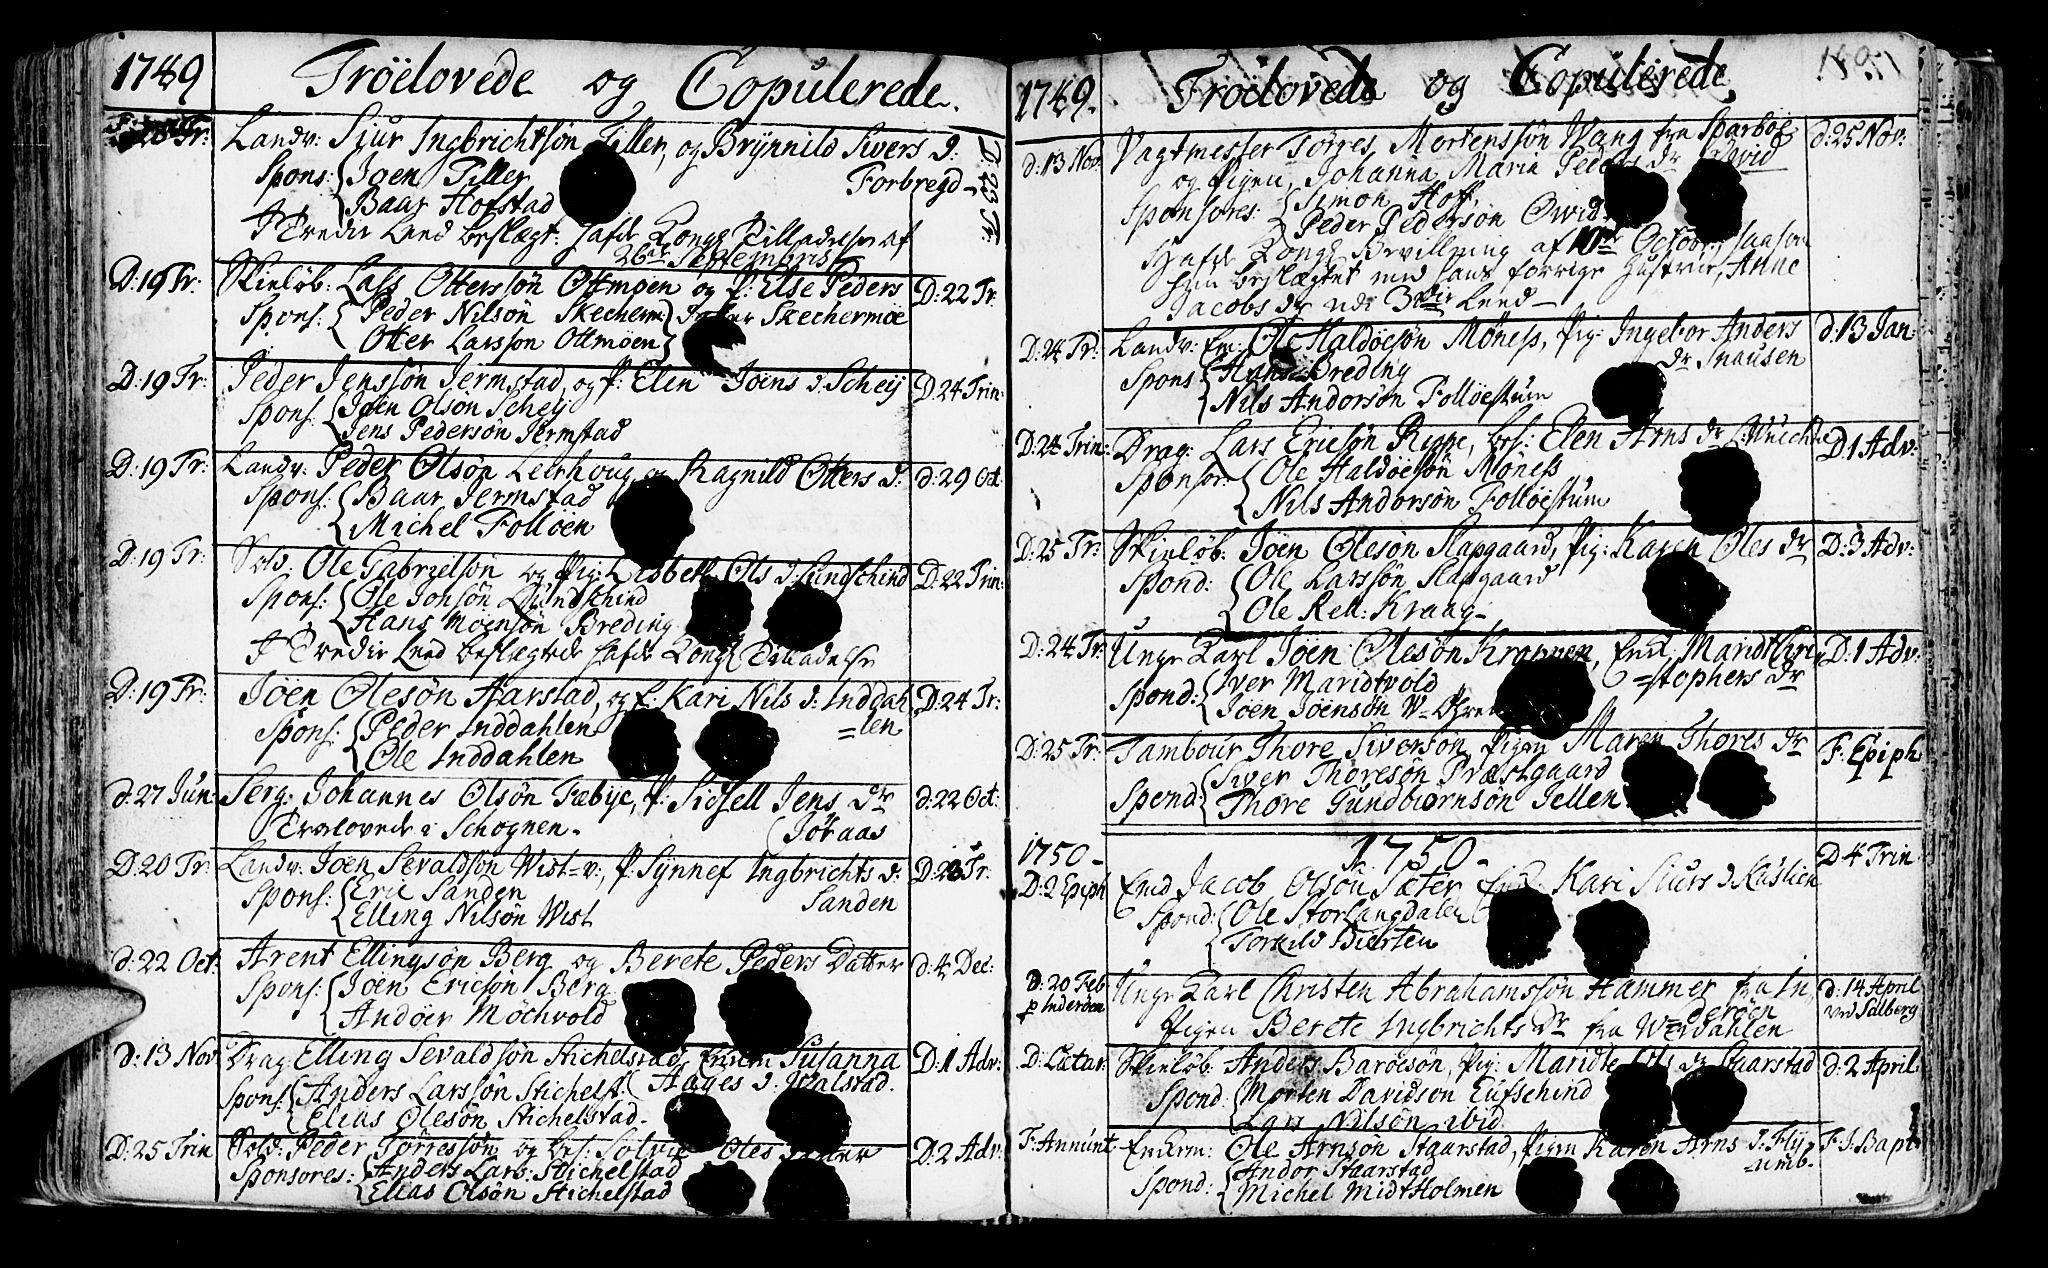 1749 Tröelovede og Copulerede.
Landv: Siur Ingbrichtsön Tiller, og Brynnild Sivers d:
Spons: Joen Tiller Forbregd
Baar Hofstad
D 23 Tr:
I Tredie Leed beslægt: hafde Kongl Tilladelse af
26de Septembris
D: 19 Tr: Skieløb: Lass Ottersön Ottmoen og P: Else Peders D: 22 Tr
Spons: Peder Nilsön Skecherm Skechermoe
Otter Larsson Ottmoen
D: 19 Tr: Peder Jenssön Jermstad, og P: Elen Joens d: Scheij D: 24 Trin:
Spons: Joen Olsön Scheij
Jens Pedersön Jermstad
D: 19 Tr: Landv: Peder Olsön Leirhoug og Ragnild Otters d: d: 29 Oct:
Spons: Baar Jermstad
Michel Folloen
D: 19 Tr: Sold: Ole Gabrielsön og Pig: Lisbeth Ols d: Sundschind D: 22 Trin:
Spons: Ole Jonsön Sundschind
Hans Moensön Breding
I Tredie Leed beslegtede hafde Kongl Tilladelse
D: 19 Tr: Joen Olesön Aarstad, og P: Kari Nils d: Inddah D: 24 Tr:
Spons: Peder Inddahlen =len
Ole Inddahlen
d: 27 Jun: Serg: Johannes Olsön Fæbye, P: Sidsell Jens dr d: 22 Oct:
Trolovede i Schognen. Joraas
D: 20 Tr: Landv: Joen Sevaldsön Wist=v:, P: Synnef Ingbrichts d:
Spons: Eric Sanden Sanden
Elling Nilsön Wist
d: 22 Oct: Arent Ellingsön Berg og Berete Peders Datter d: 4 Dec:
Spons: Joen Ericsön Berg
Andöer Möchvold
D: 13 Nov Drag: Elling Sevaldsön Stichelstad, Susanna D: 1 Adv:
Spons: Anders Larssön Stichelst: Aages d. Walstad.
Elias Olesön Stichelstad.
D: 25 Trin Sold: Peder Torressön og bes: Solvie Oles D: 2 Adv
Sponsores: Anders Lars: Stichelstad
Elias Olsön Stichelstad
1749. Tröelovede og Copulerede
d: 13 Nov: Vagtmester Törres Mortenssön Wang fra Sparboe d: 25 Nov:
og Pigen Johanna Maria Peders dr Qwid
Sponsores: Simon Hoff,
Peder Pedersön Qwid
Hafde Kongl Bevillning af 10de Octobr saasom
hun beslegtet med hans forrige Hustrue, Anne
Jacobs dr udi 3die Leed
D: 24 Tr: Landv: Ole Haldoesön Möness, Pig: Ingebor Anders d: 13 Jan:
Spons: Hans Breding dr Snausen
Nils Andorsön Folloestum
D: 24 Trin: Drag: Lars Ericsön Rippe, bes: Elen Arns dr D: 1 Adv:
Sponsor: Ole Haldoesön Möness
Nils Andorsön Folloestum
D: 25 Tr: Skieløb: Joen Olesön Slapgaard, Pig: Karen Oles dr D: 3 Adv:
Spond: Ole Larssön Slapgaard
Ole Kraag
D: 24 Tr: Unge Karl Joen Olesön Kroppen, Enk: Maridt Chri D: 1 Adv:
Spond: Iver Maridtvold =stophers dr
Joen Joensön
D: 25 Tr: Tambour Thore Siversön, Pigen Maren Thores dr F: Epiph
Spond: Siver Thoresön Præstgaard
Thore Gundbiörnsön Jellen
1750 1750 D 4 Trin
D: 2 Epiph Jacob Olsön Sæter Kari Siurs d Kuslien
Spond: Ole Storlangdalen
Torkild Biærten
D: 20 Feb Unge Karl Christen Abrahamssön Hammer fra In d: 14 April
p Inderöen =deröen ved Salberg
Pigen Berete Ingbrichts Dr fra Werdahlen
D: Lætar: Skieløb: Anders Baroesön, Pig: Maridte Ols dr Staarstad d: 2 April
Spond: Morten Davidson Eufschind
Lars Nilsön ibid
F: Annunt Ole Arnsön Staarstad, Pigen Karen Arns d. Flij F. J. Bapt
Spond: Andor Staarstad
Michel MidtHolmen